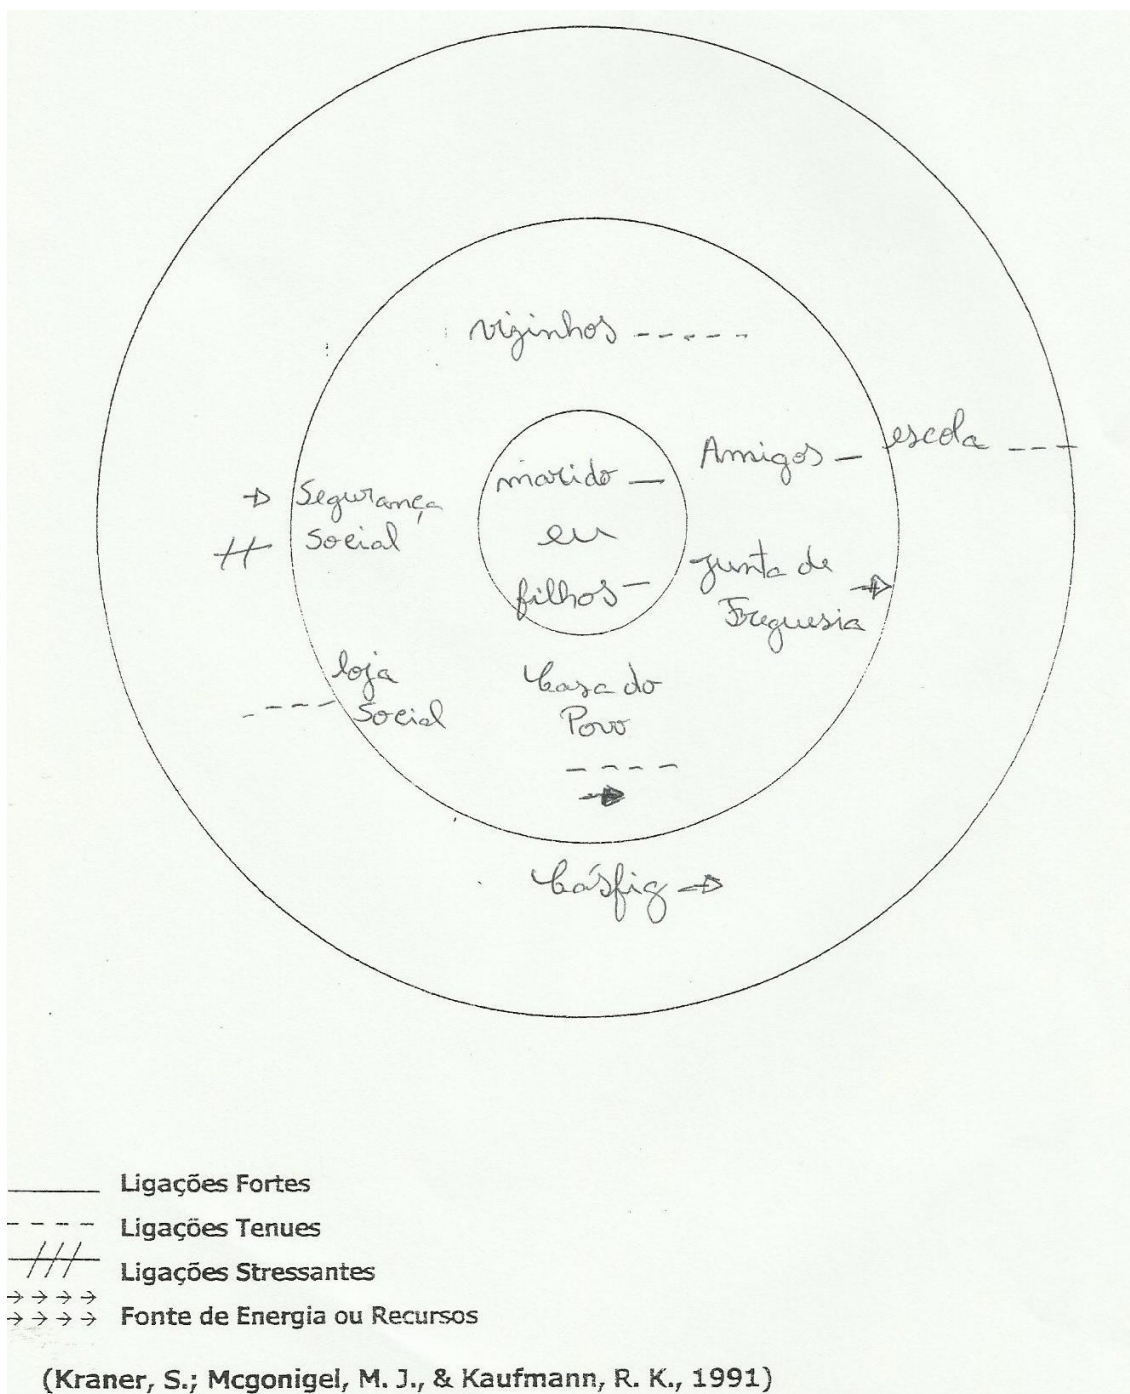 vizinhos
Amigos
escola
marido
eu
filhos
Segurança
Social
Junta de
Freguesia
loja
Social
Casa do
Povo
Cásfig
Ligações Fortes
Ligações Tenues
Ligações Stressantes
Fonte de Energia ou Recursos
(Kraner, S.; Mcgonigel, M. J., & Kaufmann, R. K., 1991)